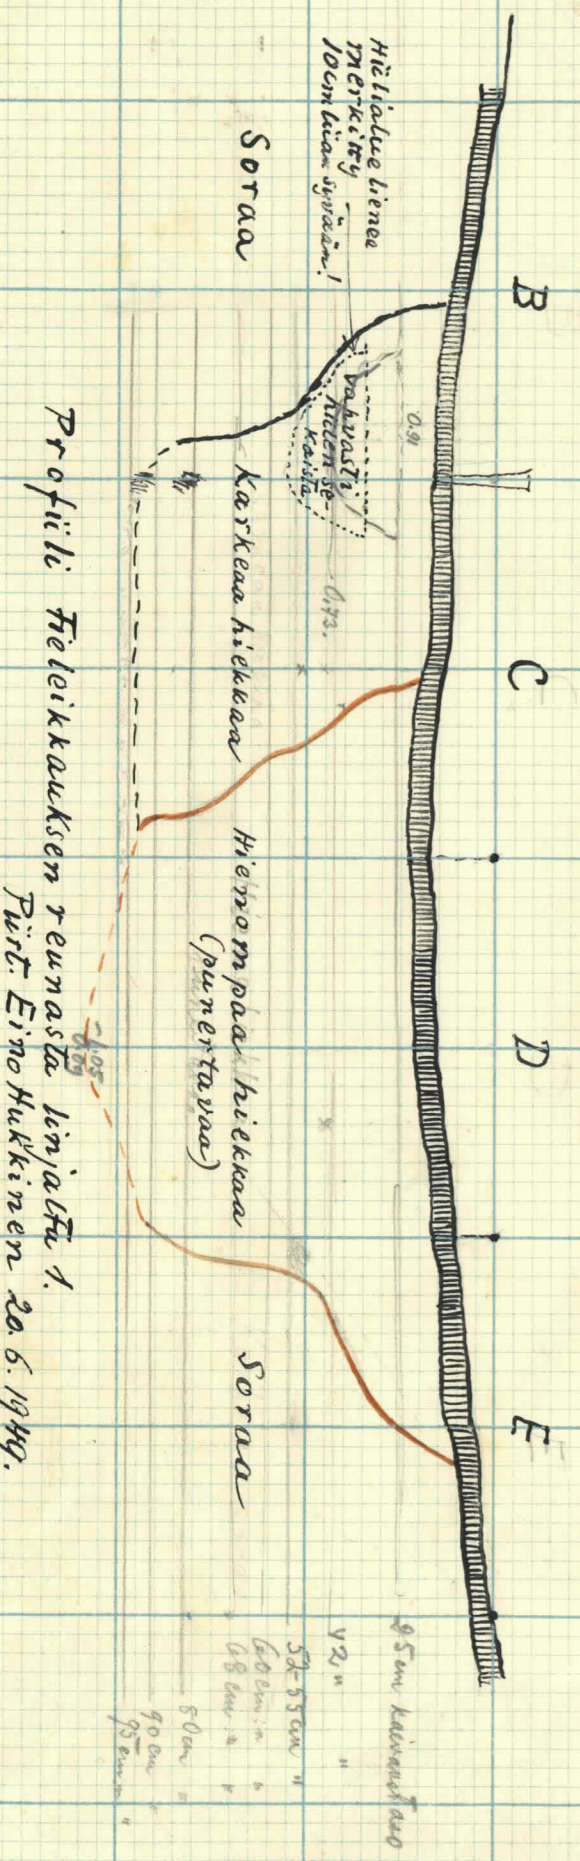 B
C
D
E
Hiilialue lienee
merkitty
10cm liian syvään!
Soraa
0.91
vahvasti
hiilen se-
kaista
0.73.
Karkeaa hiekkaa
Hienompaa hiekkaa
(punertavaa)
Soraa
25cm kaivaustaso
42 " "
52-55cm "
60cm " "
68cm " "
80cm "
90cm "
95cm "
Profiili tieleikkauksen reunasta linjalta 1.
Piirt. Eino Hukkinen 20.6.1949.